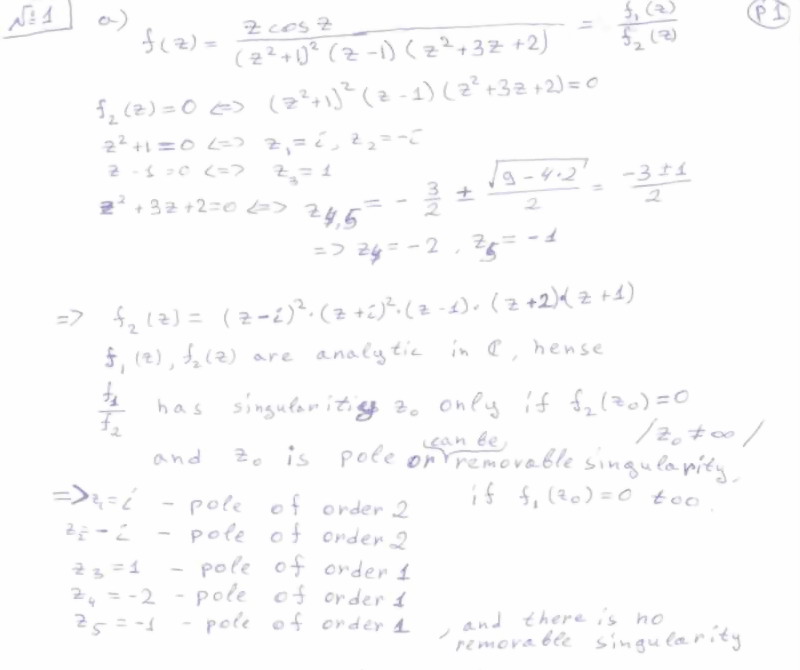 №1 a) f(z) = z cos z / (z²+1)² (z-1) (z²+3z+2) = f₁(z) / f₂(z) P1
f₂(z)=0 <=> (z²+1)² (z-1) (z²+3z+2)=0
z²+1=0 <=> z₁=i, z₂=-i
z-1=0 <=> z₃=1
z²+3z+2=0 <=> z₄,₅ = -3/2 ± √(9-4·2)/2 = (-3±1)/2
=> z₄=-2, z₅=-1
=> f₂(z) = (z-i)²·(z+i)²·(z-1)·(z+2)·(z+1)
f₁(z), f₂(z) are analytic in ℂ, hense
f₁/f₂ has singularities z₀ only if f₂(z₀)=0
/z₀≠∞/
and z₀ is pole or can be removable singularity,
if f₁(z₀)=0 too.
=> z₁=i - pole of order 2
z₂=-i - pole of order 2
z₃=1 - pole of order 1
z₄=-2 - pole of order 1
z₅=-1 - pole of order 1, and there is no
removable singularity